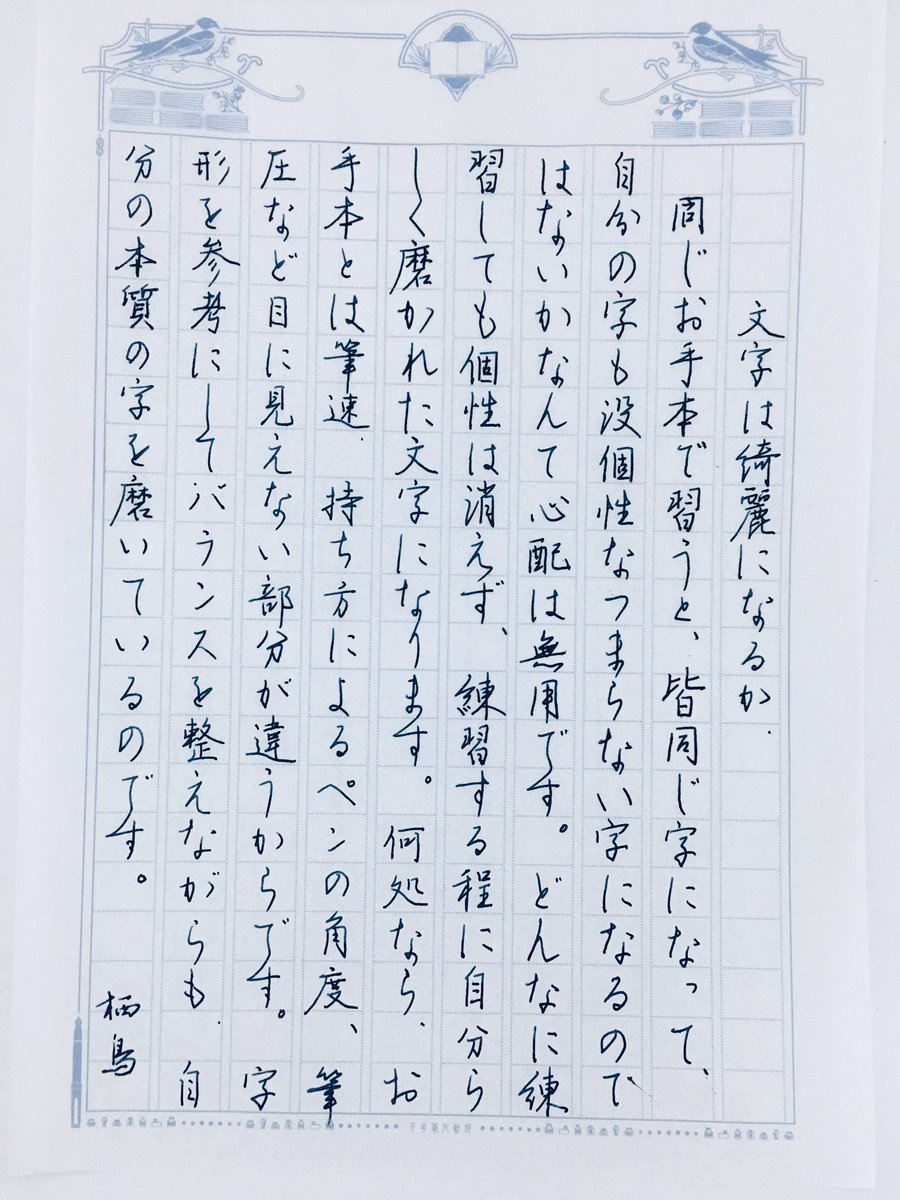 文字は綺麗になるか.
同じお手本で習うと、皆同じ字になって、
自分の字も没個性なつまらない字になるので
はないかなんて心配は無用です。どんなに練
習しても個性は消えず、練習する程に自分ら
しく磨かれた文字になります。何処なら、お
手本とは筆速、持ち方によるペンの角度、筆
圧など目に見えない部分が違うからです。字
形を参考にしてバランスを整えながらも、自
分の本質の字を磨いているのです。
栖鳥